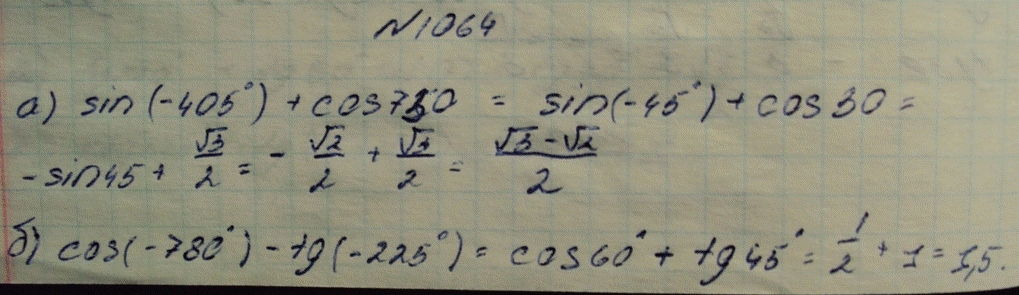 №1064
а) sin(-405°) + cos750 = sin(-45°) + cos30 =
-sin45 + √3/2 = - √2/2 + √3/2 = (√3 - √2)/2
б) cos(-780°) - tg(-225°) = cos60° + tg45° = 1/2 + 1 = 1,5.